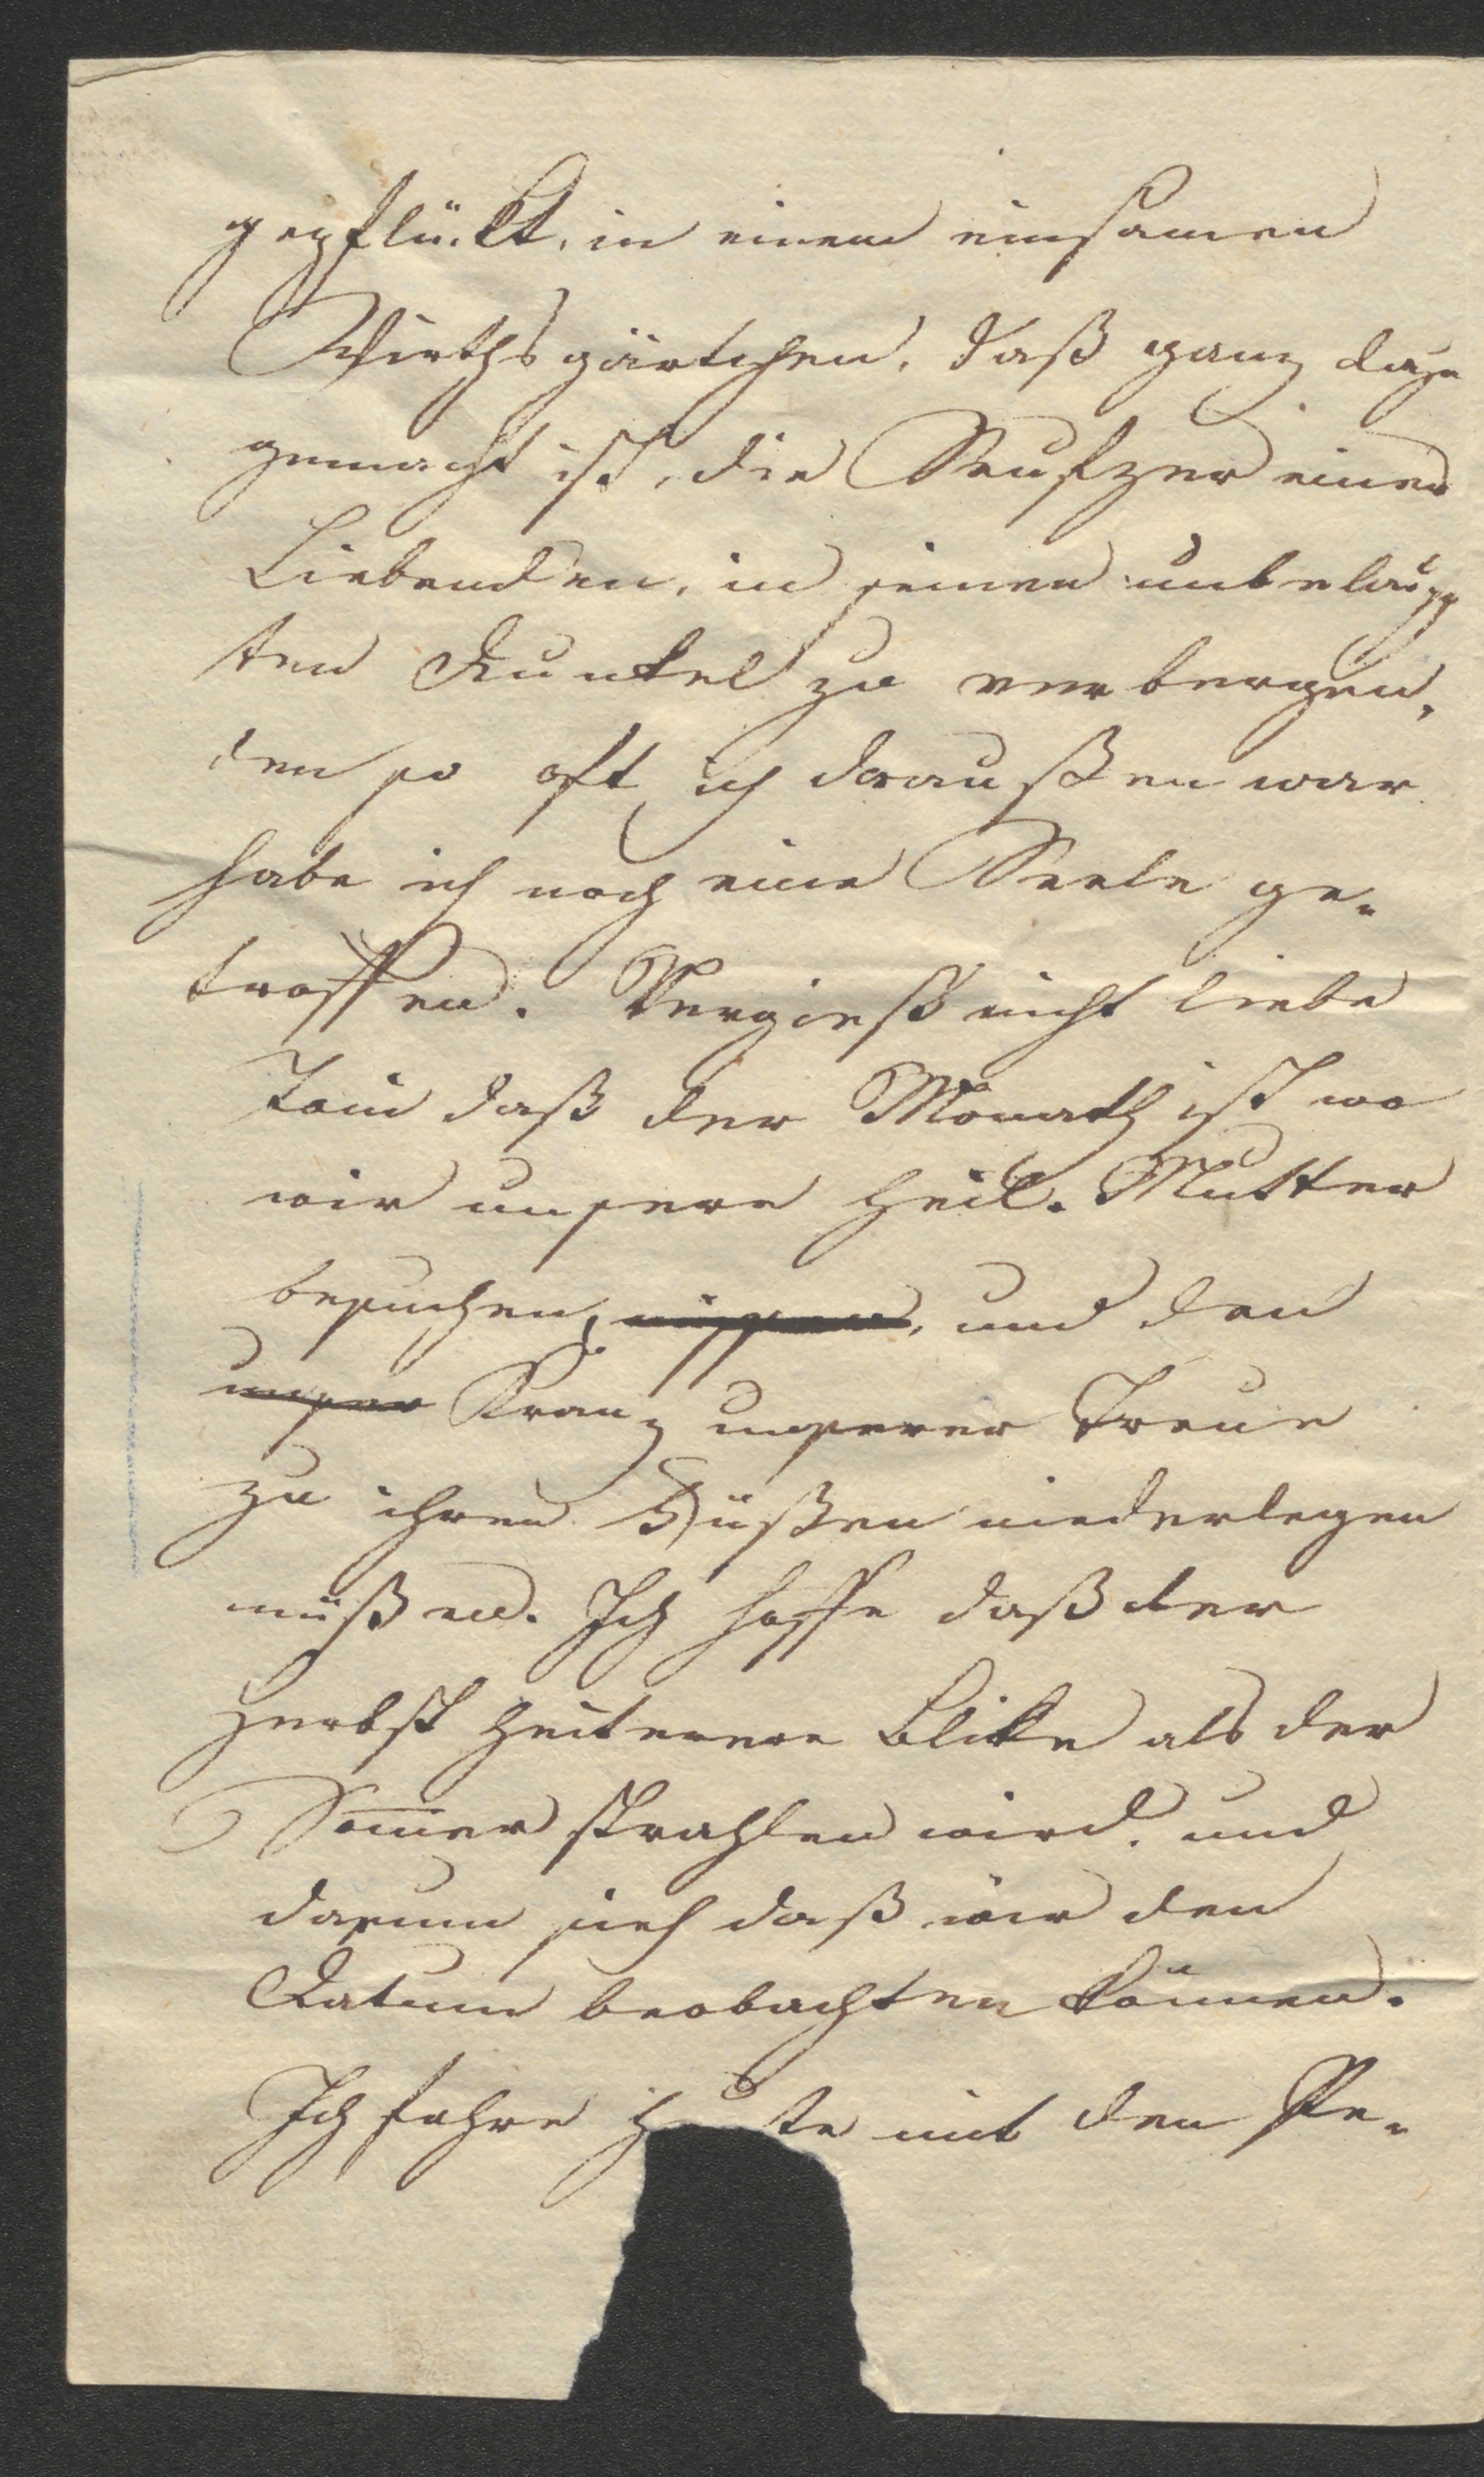 gepflückt, in einem einsamen
Wirthsgärtchen, daß ganz dazu
gemacht ist, die Seufzer eines
Liebenden, in seinen unbelausch
ten Dunkel zu verbergen,
den so oft ich draußen war
habe ich noch eine Seele ge-
troffen. Vergieß nicht liebe
Toni daß der Monath ist wo
wir unsere heil. Mutter
besuchen, müssen, und den
unser Kranz unserer Treue
zu ihren Füßen niederlegen
müßen. Ich hoffe daß der
Herbst heiterere Blike als der
Somer strahlen wird, und
darum sieh daß wir den
Datum beobachten können.
Ich fahre heute mit den Pe-